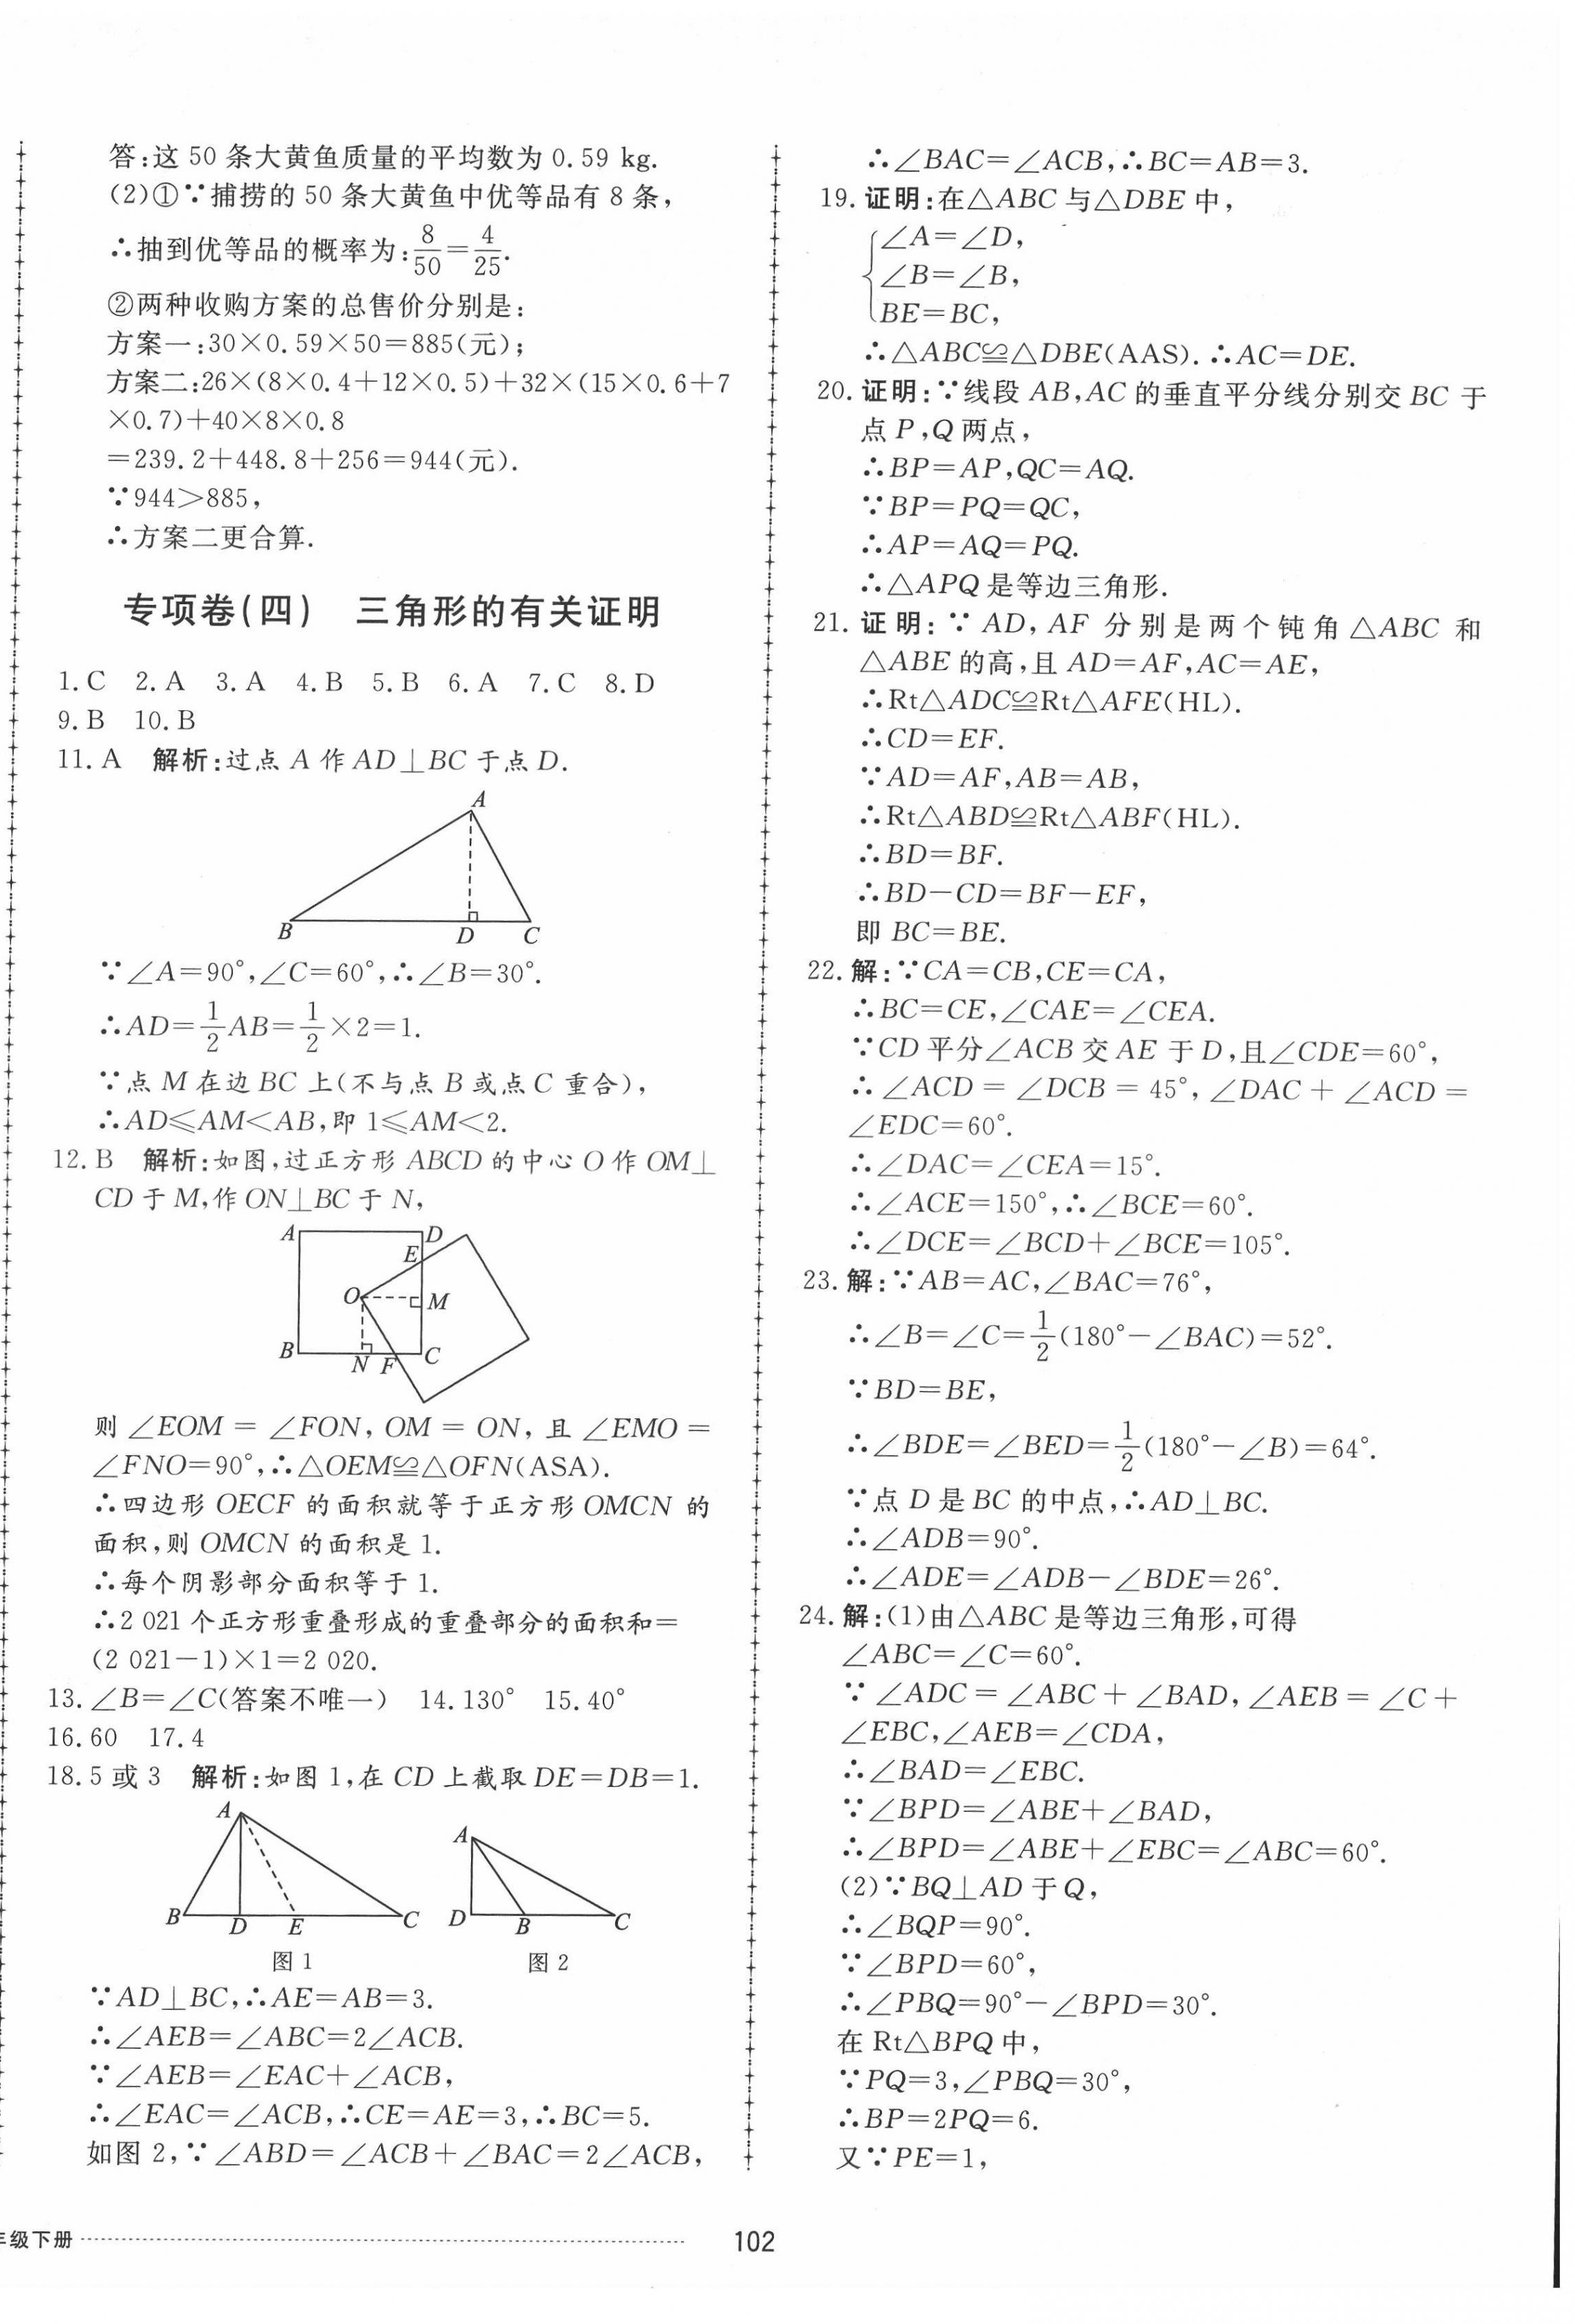 答:这 50 条大黄鱼质量的平均数为 0.59 kg.
(2)①∵捕捞的 50 条大黄鱼中优等品有 8 条,
∴抽到优等品的概率为:8/50=4/25.
②两种收购方案的总售价分别是:
方案一:30×0.59×50=885(元);
方案二:26×(8×0.4+12×0.5)+32×(15×0.6+7
×0.7)+40×8×0.8
=239.2+448.8+256=944(元).
∵944>885,
∴方案二更合算.
专项卷(四) 三角形的有关证明
1.C 2.A 3.A 4.B 5.B 6.A 7.C 8.D
9.B 10.B
11.A 解析:过点 A 作 AD⊥BC 于点 D.
A
B D C
∵∠A=90°,∠C=60°,∴∠B=30°.
∴AD=1/2AB=1/2×2=1.
∵点 M 在边 BC 上(不与点 B 或点 C 重合),
∴AD≤AM<AB,即 1≤AM<2.
12.B 解析:如图,过正方形 ABCD 的中心 O 作 OM⊥
CD 于 M,作 ON⊥BC 于 N,
A D
E
O M
B N F C
则 ∠EOM = ∠FON, OM = ON, 且 ∠EMO =
∠FNO=90°,∴△OEM≌△OFN(ASA).
∴四边形 OECF 的面积就等于正方形 OMCN 的
面积,则 OMCN 的面积是 1.
∴每个阴影部分面积等于 1.
∴2 021 个正方形重叠形成的重叠部分的面积和=
(2 021-1)×1=2 020.
13.∠B=∠C(答案不唯一) 14.130° 15.40°
16.60 17.4
18.5 或 3 解析:如图 1,在 CD 上截取 DE=DB=1.
A A
B D E C D B C
图 1 图 2
∵AD⊥BC,∴AE=AB=3.
∴∠AEB=∠ABC=2∠ACB.
∵∠AEB=∠EAC+∠ACB,
∴∠EAC=∠ACB,∴CE=AE=3,∴BC=5.
如图 2,∵∠ABD=∠ACB+∠BAC=2∠ACB,
∴∠BAC=∠ACB,∴BC=AB=3.
19.证明:在△ABC 与△DBE 中,
∠A=∠D,
∠B=∠B,
BE=BC,
∴△ABC≌△DBE(AAS).∴AC=DE.
20.证明:∵线段 AB,AC 的垂直平分线分别交 BC 于
点 P,Q 两点,
∴BP=AP,QC=AQ.
∵BP=PQ=QC,
∴AP=AQ=PQ.
∴△APQ 是等边三角形.
21.证明:∵ AD, AF 分别是两个钝角△ABC 和
△ABE 的高,且 AD=AF,AC=AE,
∴Rt△ADC≌Rt△AFE(HL).
∴CD=EF.
∵AD=AF,AB=AB,
∴Rt△ABD≌Rt△ABF(HL).
∴BD=BF.
∴BD-CD=BF-EF,
即 BC=BE.
22.解:∵CA=CB,CE=CA,
∴BC=CE,∠CAE=∠CEA.
∵CD 平分∠ACB 交 AE 于 D,且∠CDE=60°,
∴ ∠ACD = ∠DCB = 45°, ∠DAC + ∠ACD =
∠EDC=60°.
∴∠DAC=∠CEA=15°.
∴∠ACE=150°,∴∠BCE=60°.
∴∠DCE=∠BCD+∠BCE=105°.
23.解:∵AB=AC,∠BAC=76°,
∴∠B=∠C=1/2(180°-∠BAC)=52°.
∵BD=BE,
∴∠BDE=∠BED=1/2(180°-∠B)=64°.
∵点 D 是 BC 的中点,∴AD⊥BC.
∴∠ADB=90°.
∴∠ADE=∠ADB-∠BDE=26°.
24.解:(1)由△ABC 是等边三角形,可得
∠ABC=∠C=60°.
∵ ∠ADC = ∠ABC + ∠BAD, ∠AEB = ∠C +
∠EBC,∠AEB=∠CDA,
∴∠BAD=∠EBC.
∵∠BPD=∠ABE+∠BAD,
∴∠BPD=∠ABE+∠EBC=∠ABC=60°.
(2)∵BQ⊥AD 于 Q,
∴∠BQP=90°.
∵∠BPD=60°,
∴∠PBQ=90°-∠BPD=30°.
在 Rt△BPQ 中,
∵PQ=3,∠PBQ=30°,
∴BP=2PQ=6.
又∵PE=1,
级下册
102